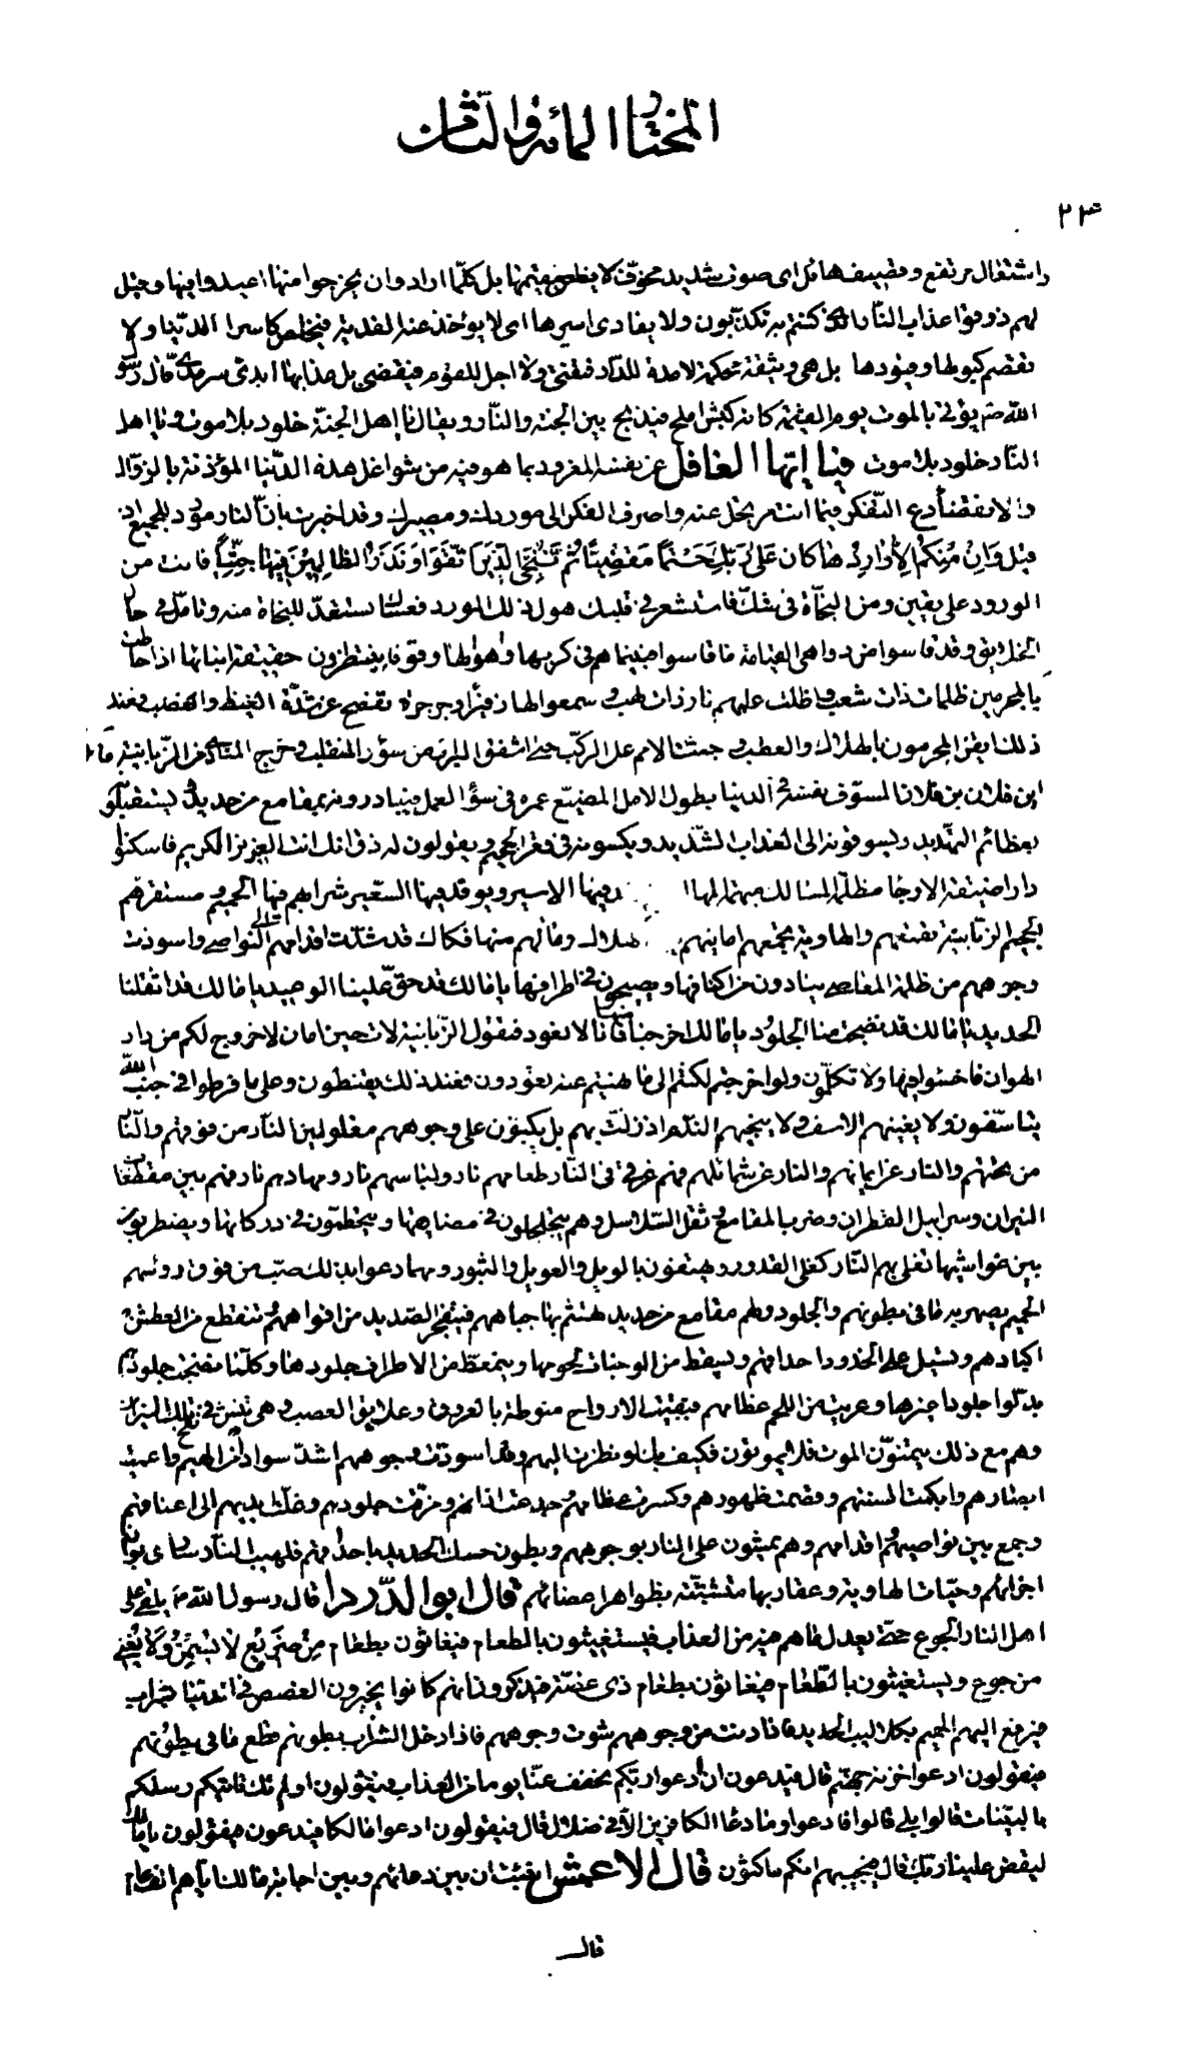 المختار المائة والثامن
٢٣
واشتعال مرتفع وقصيف هائل اى صوت شديد مخوف لا يظعن مقيمها بل كلما ارادوا ان يخرجوا منها اعيدوا فيها وقيل
لهم ذوقوا عذاب النار الذى كنتم به تكذبون ولا يفادى اسيرها اى لا يؤخذ عنه الفدية فيخلص كاسرا الدنيا ولا
تفصم كبولها وقيودها بل هى وثيقة محكمة لا مدة للدار فتفنى ولا اجل للقوم فيقضى بل عذابها ابدى سرمدى قال رسو
الله ص يؤتى بالموت يوم القيمة كانه كبش املح فيذبح بين الجنة والنار ويقال يا اهل الجنة خلود بلا موت ويا اهل
النار خلود بلا موت فيا ايها الغافل عن نفسه المغرور بما هو فيه من شواغل هذه الدنيا المؤذنة بالزوال
والانقضاء دع التفكر فيما انت مرتحل عنه واصرف الفكر الى موردك ومصيرك وقد اخبرت بان النار مورد للجميع اذ
قيل وَاِنْ مِنْكُمْ اِلاّٰ وٰارِدُهٰا كٰانَ عَلىٰ رَبِّكَ حَتْماً مَقْضِيّاً ثُمَّ نُنَجِّى الَّذِينَ اتَّقَوْا وَنَذَرُ الظّٰالِمِينَ فِيهٰا جِثِيّاً فانت من
الورود على يقين ومن النجاة فى شك فاستشعر فى قلبك هول ذلك المورد فعساك تستعد للنجاة منه وتامل فى حال
الخلايق وقد قاسوا من دواهى القيامة ما قاسوا فبينما هم فى كربها واهوالها وقوفا ينتظرون حقيقة انبائها اذ احاطت
بالمجرمين ظلمات ذات شعب واظلت عليهم نار ذات لهب وسمعوا لها زفيرا وجرجرة تفصح عن شدة الغيظ والغضب فعند
ذلك ايقن المجرمون بالهلاك والعطب وجثت الامم على الركب حتى اشفق البرئ من سوء المنقلب وخرج المنادى من الزبانية قائلا
اين فلان بن فلان المسوف نفسه فى الدنيا بطول الامل المضيع عمره فى سوء العمل فيبادرونه بمقامع من حديد ويستقبلونه
بعظائم التهديد ويسوقونه الى العذاب الشديد وينكسونه فى قعر الجحيم ويقولون له ذق انك انت العزيز الكريم فاسكنوا
دارا ضيقة الارجاء مظلمة المسالك مبهمة المها فيها الاسير ويوقد فيها السعير شرابهم فيها الحميم ومستقرهم
الجحيم الزبانية تقمعهم والهاوية تجمعهم امانيهم الهلاك ومالهم منها فكاك قد شدت اقدامهم الى النواصى واسودت
وجوههم من ظلمة المعاصى ينادون من اكنافها ويصيحون فى اطرافها يا مالك قد حق علينا الوعيد يا مالك قد اثقلنا
الحديد يا مالك قد نضجت منا الجلود يا مالك اخرجنا فانا لا نعود فتقول الزبانية لات حين امان لا خروج لكم من دار
الهوان فاخسئوا فيها ولا تكلمون ولو اخرجتم لكنتم الى ما نهيتم عنه تعودون فعند ذلك يقنطون وعلى ما فرطوا فى جنب الله
يتاسفون ولا يغنيهم الاسف ولا ينجيهم الندم اذ زلت بهم بل يكبون على وجوههم مغلولين النار من فوقهم والنار
من تحتهم والنار عن ايمانهم والنار عن شمائلهم فهم غرقى فى النار طعامهم نار ولباسهم نار ومهادهم نار فهم بين مقطعات
النيران وسرابيل القطران وضرب المقامع وثقل السلاسل وهم يتجلجلون فى مضايقها ويتحطمون فى دركاتها ويضطربون
بين غواشيها تغلى بهم النار كغلى القدور ويهتفون بالويل والعويل والثبور ومهما دعوا بذلك صب من فوق رؤسهم
الحميم يصهر به ما فى بطونهم والجلود ولهم مقامع من حديد تهشم بها جباههم فينفجر الصديد من افواههم وتنقطع من العطش
اكبادهم وتسيل على الخدود احداقهم ويسقط من الوجنات لحومها ويتمعط من الاطراف جلودها وكلما نضجت جلودهم
بدلوا جلودا غيرها وعريت من اللحم عظامهم فبقيت الارواح منوطة بالعروق وعلايق العصب وهى تنش فى لفح تلك النيران
وهم مع ذلك يتمنون الموت فلا يموتون فكيف بك لو نظرت اليهم وقد اسودت وجوههم اشد سوادا من الحميم واعميت
ابصارهم وابكمت السنتهم وقصمت ظهورهم وكسرت عظامهم وجدعت اذانهم ومزقت جلودهم وغلت ايديهم الى اعناقهم
وجمع بين نواصيهم واقدامهم وهم يمشون على النار بوجوههم ويطؤن حسك الحديد باحداقهم فلهيب النار سار فى بواطن
اجزائهم وحيات الهاوية وعقاربها متشبثة بظواهر اعضائهم قال ابو الدرداء قال رسول الله ص يلقى على
اهل النار الجوع حتى يعدل ما هم فيه من العذاب فيستغيثون بالطعام فيغاثون بطعام مِنْ ضَرِيعٍ لاٰ يُسْمِنُ وَلاٰ يُغْنِى
من جوع ويستغيثون بالطعام فيغاثون بطعام ذى غصة فيذكرون انهم كانوا يجيزون الغصص فى الدنيا بشراب
فيرفع اليهم الحميم بكلاليب الحديد فاذا دنت من وجوههم شوت وجوههم فاذا دخل الشراب بطونهم قطع ما فى بطونهم
فيقولون ادعوا خزنة جهنم قال فيدعون ان ادعوا ربكم يخفف عنا يوما من العذاب فيقولون اولم تك تاتيكم رسلكم
بالبينات قالوا بلى قالوا فادعوا وما دعاء الكافرين الا فى ضلال قال فيقولون ادعوا مالكا فيدعون فيقولون يا مالك
ليقض علينا ربك قال فيجيبهم انكم ماكثون قال الاعمش انبئت ان بين دعائهم وبين اجابة مالك اياهم الف عام
قال